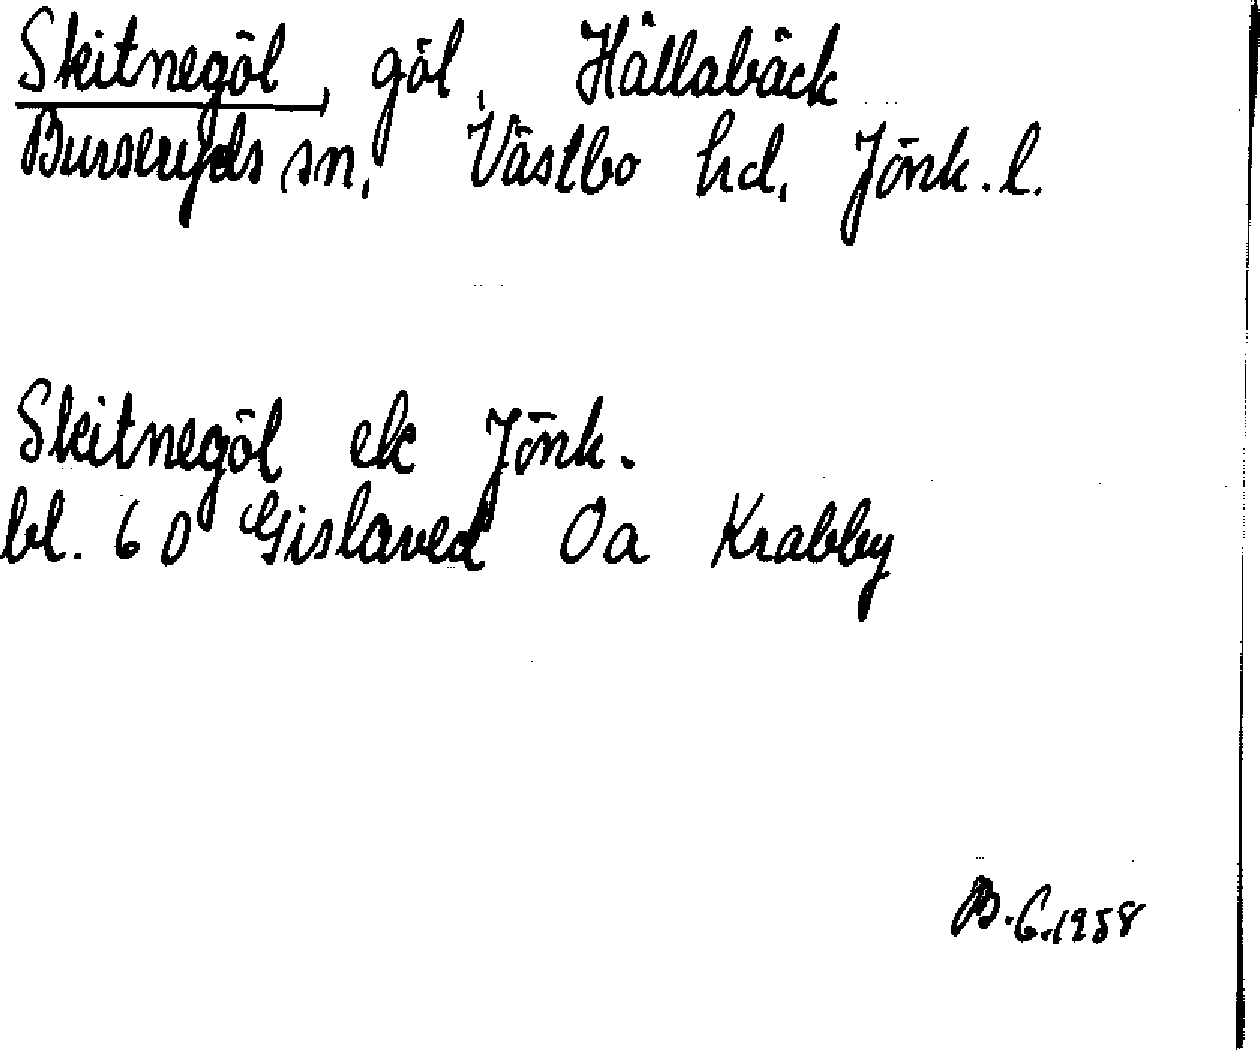 Skitnegöl, göl, Hållabäck
Burseryds sn, Västbo hd, Jönk. l.
Skitnegöl ek Jönk.
bl. 60 Gislaved Oa Krabby
B. G. 1958